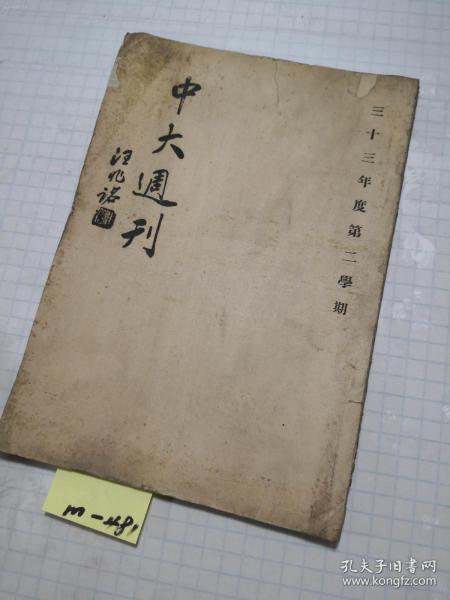 三十三年度第二學期
中大週刊
汪兆銘
m-481
孔夫子旧书网
www.kongfz.com